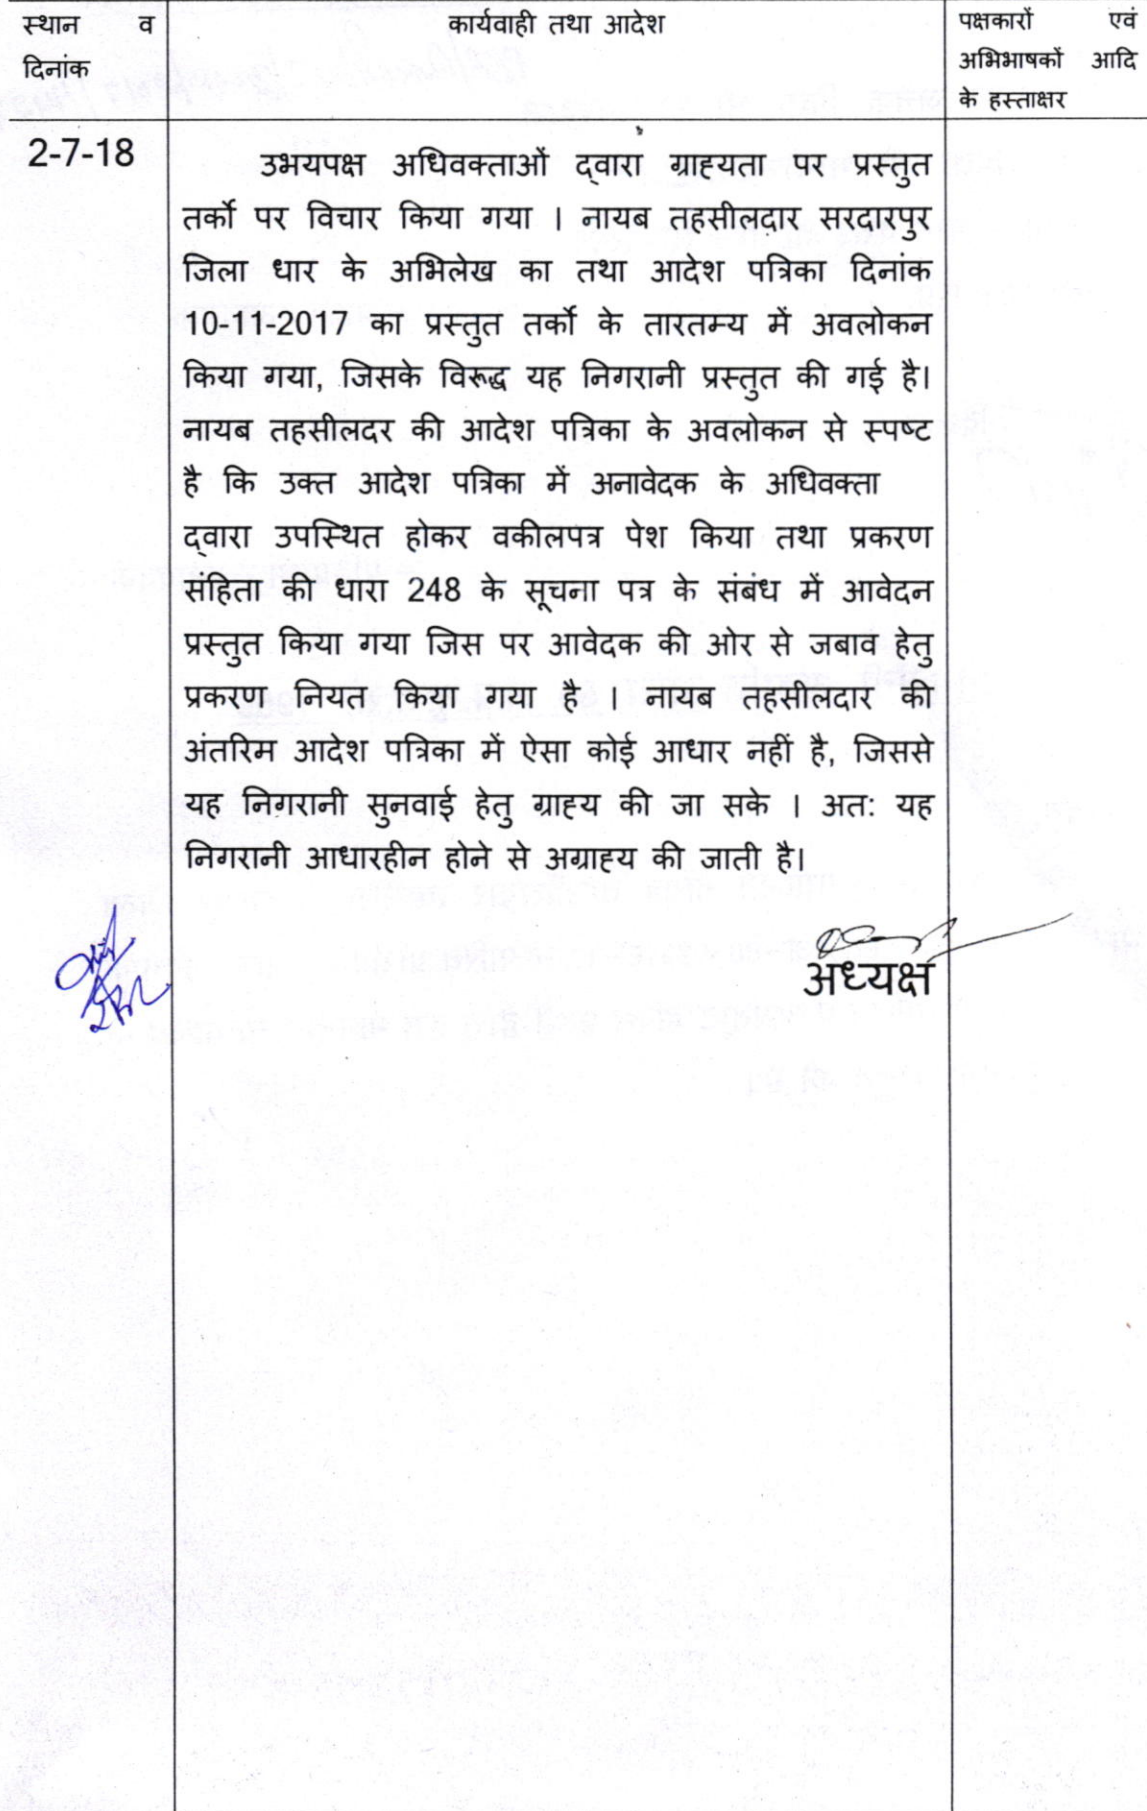 स्थान व
दिनांक
कार्यवाही तथा आदेश
पक्षकारों एवं
अभिभाषकों आदि
के हस्ताक्षर
2-7-18
उभयपक्ष अधिवक्ताओं द्वारा ग्राह्यता पर प्रस्तुत
तर्को पर विचार किया गया । नायब तहसीलदार सरदारपुर
जिला धार के अभिलेख का तथा आदेश पत्रिका दिनांक
10-11-2017 का प्रस्तुत तर्को के तारतम्य में अवलोकन
किया गया, जिसके विरूद्ध यह निगरानी प्रस्तुत की गई है।
नायब तहसीलदर की आदेश पत्रिका के अवलोकन से स्पष्ट
है कि उक्त आदेश पत्रिका में अनावेदक के अधिवक्ता
द्वारा उपस्थित होकर वकीलपत्र पेश किया तथा प्रकरण
संहिता की धारा 248 के सूचना पत्र के संबंध में आवेदन
प्रस्तुत किया गया जिस पर आवेदक की ओर से जबाव हेतु
प्रकरण नियत किया गया है । नायब तहसीलदार की
अंतरिम आदेश पत्रिका में ऐसा कोई आधार नहीं है, जिससे
यह निगरानी सुनवाई हेतु ग्राह्य की जा सके । अत: यह
निगरानी आधारहीन होने से अग्राह्य की जाती है।
अध्यक्ष